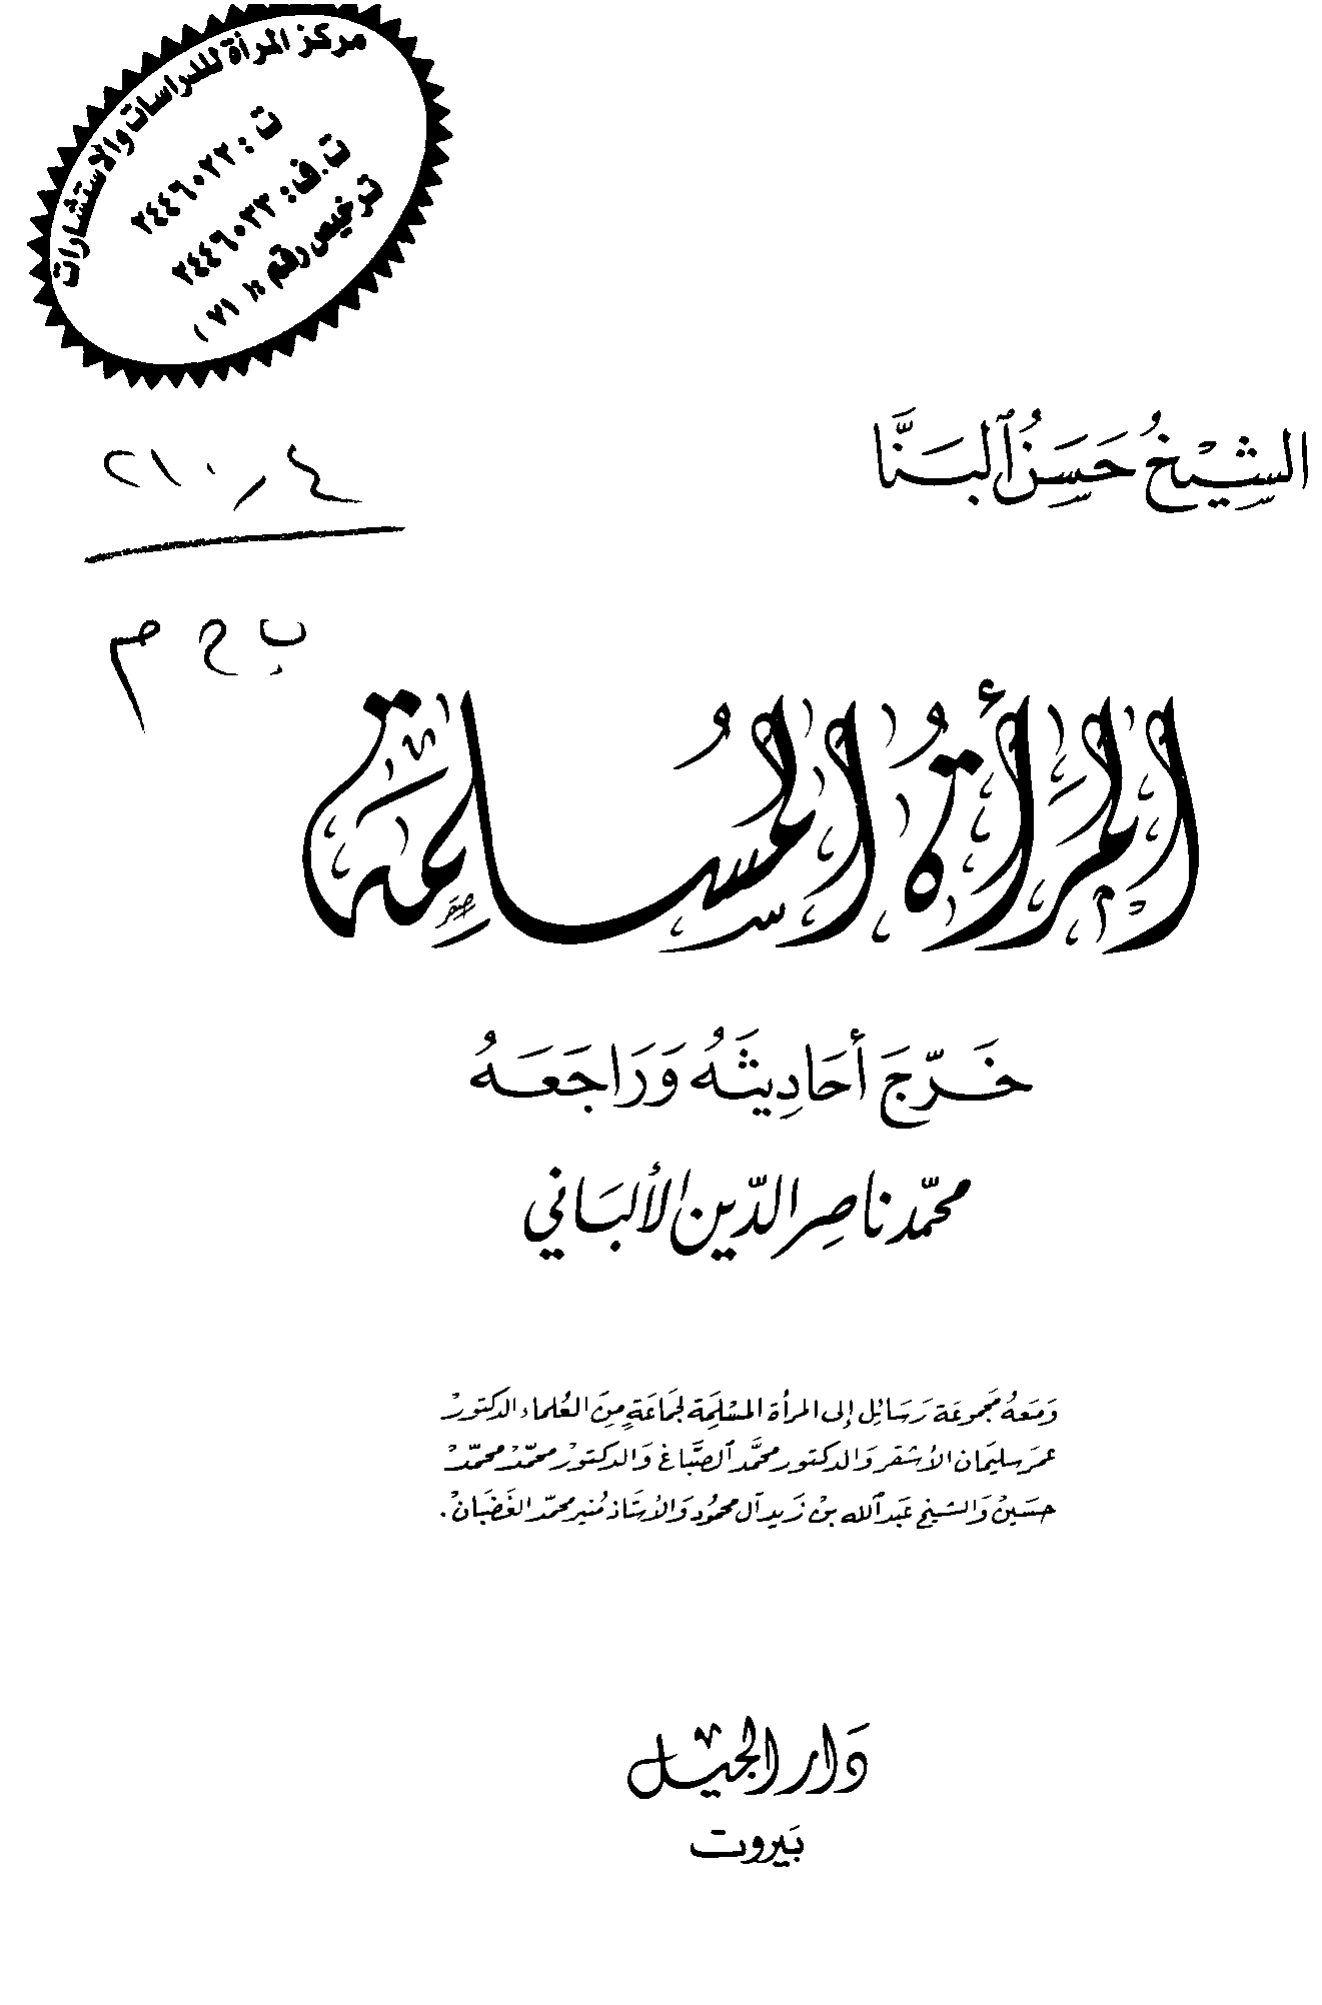 مركز المرأة للدراسات والاستشارات
ت : ٢٤٤٦٠٢٢
ت.ف: ٢٤٤٦٠٣٣
ترخيص رقم :( ٧١ )
الشِّيْخُ حَسَنُ ٱلبَنَّا
٢١٠,٤
ب ح م
المَرْأَةُ المُسْلِمَة
خَرَّجَ أَحَادِيثَهُ وَرَاجَعَهُ
محمّد ناصِر الدّين الألبَاني
وَمَعَهُ مَجموعَة رَسَائِل إلى المرأة المسْلِمَة لجمَاعَةٍ مِنَ العُلماء الدكتورْ
عمَر سليمَان الأشقر وَالدكتور محمَّد ٱلصَّبَّاغ وَالدكتورْ محمّدْ محمّدْ
حسَينْ وَالشيخ عَبد ٱلله بنْ زَيد آل محمُود وَالأستَاذ مُنير محمّد الغَضبَانْ .
دَار الجيْل
بَيروت